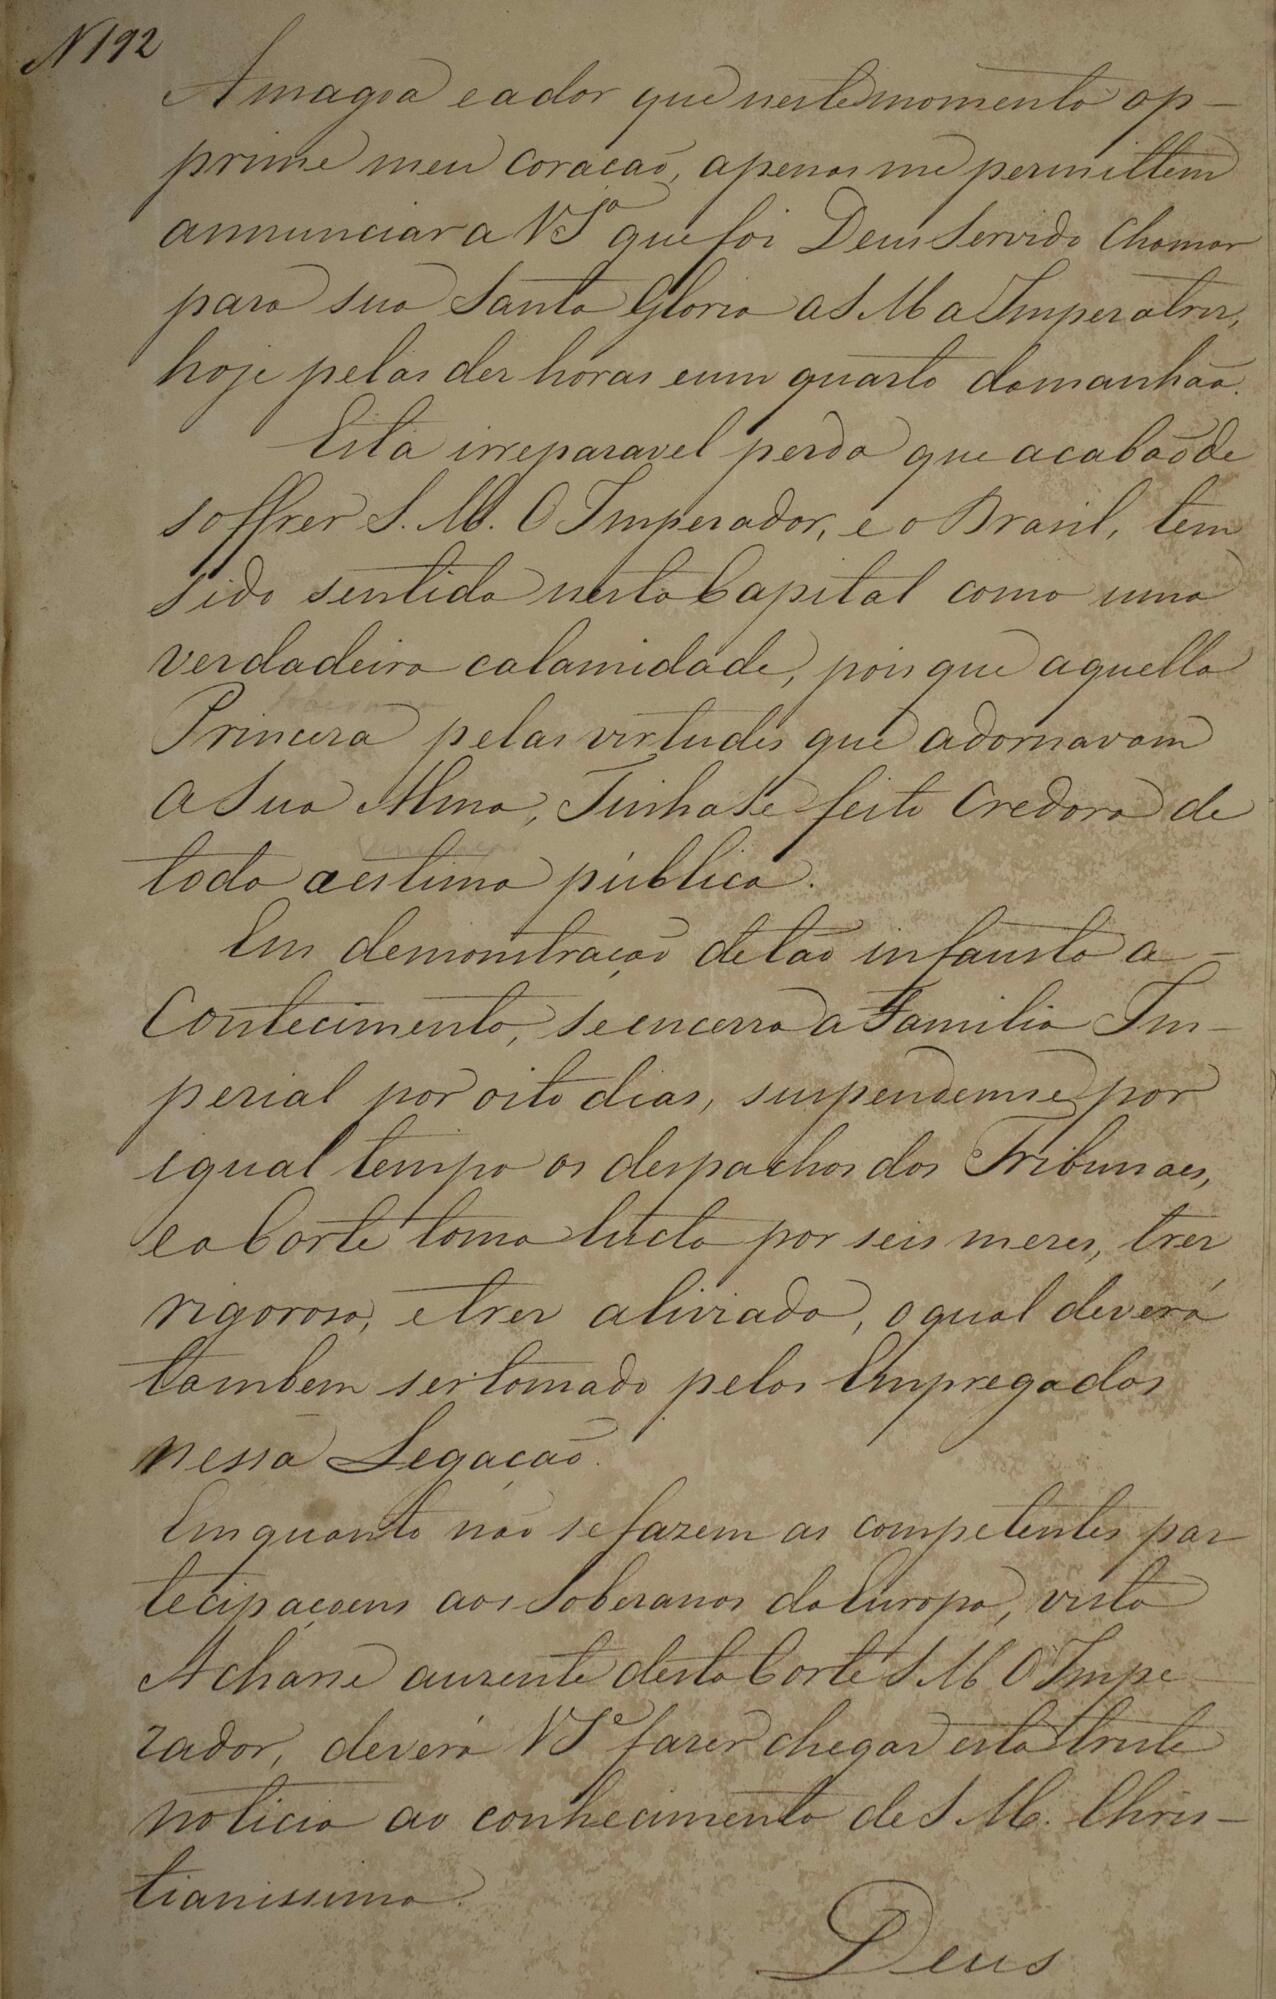 N 192
A magoa e a dor que neste momento op-
prime meu coração, apenas me permittem
annunciar a VSª que foi Deus Servido Chamar
para sua Santa Gloria a S M a Imperatriz,
hoje pelas dez horas e um quarto da manhãa.
Esta irreparavel perda que acabão de
soffrer S. M. O Imperador, e o Brasil, tem
sido sentida nesta Capital como uma
verdadeira calamidade, pois que aquella
Princeza pelas virtudes que adornavam
a Sua Alma, Tinha se feito Credora de
toda a estima pública.
Em demonstração de tão infausto a-
Contecimento, se encerra a Familia Im-
perial por oito dias, suspendem se por
igual tempo os despachos dos Tribunaes,
e a Corte toma lucto por seis mezes, trez
rigoroso, e trez aliviado, o qual deverá
tambem ser tomado pelos Empregados
nessa Legação.
Emquanto não se fazem as competentes par
tecipaçoens aos Soberanos da Europa, visto
Acharse auzente desta Corte S M O Impe-
rador, deverá VSª fazer chegar esta triste
noticia ao conhecimento de S. M. Chris-
tianissima.
Deus